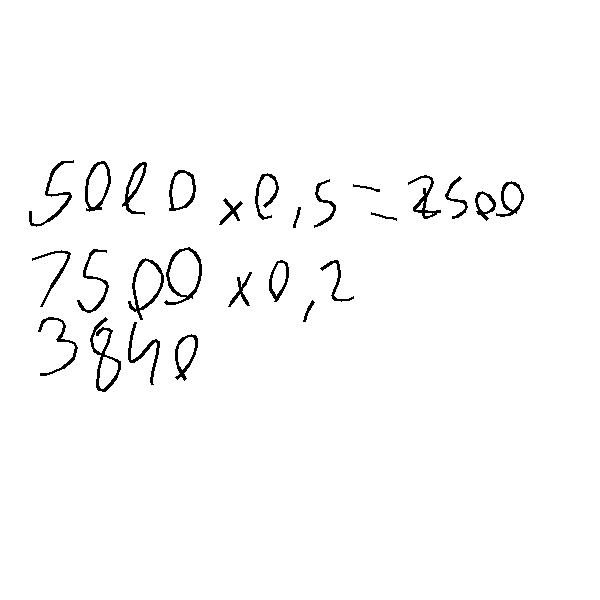 5000 x 0,5 = 2500
7500 x 0,2
3840